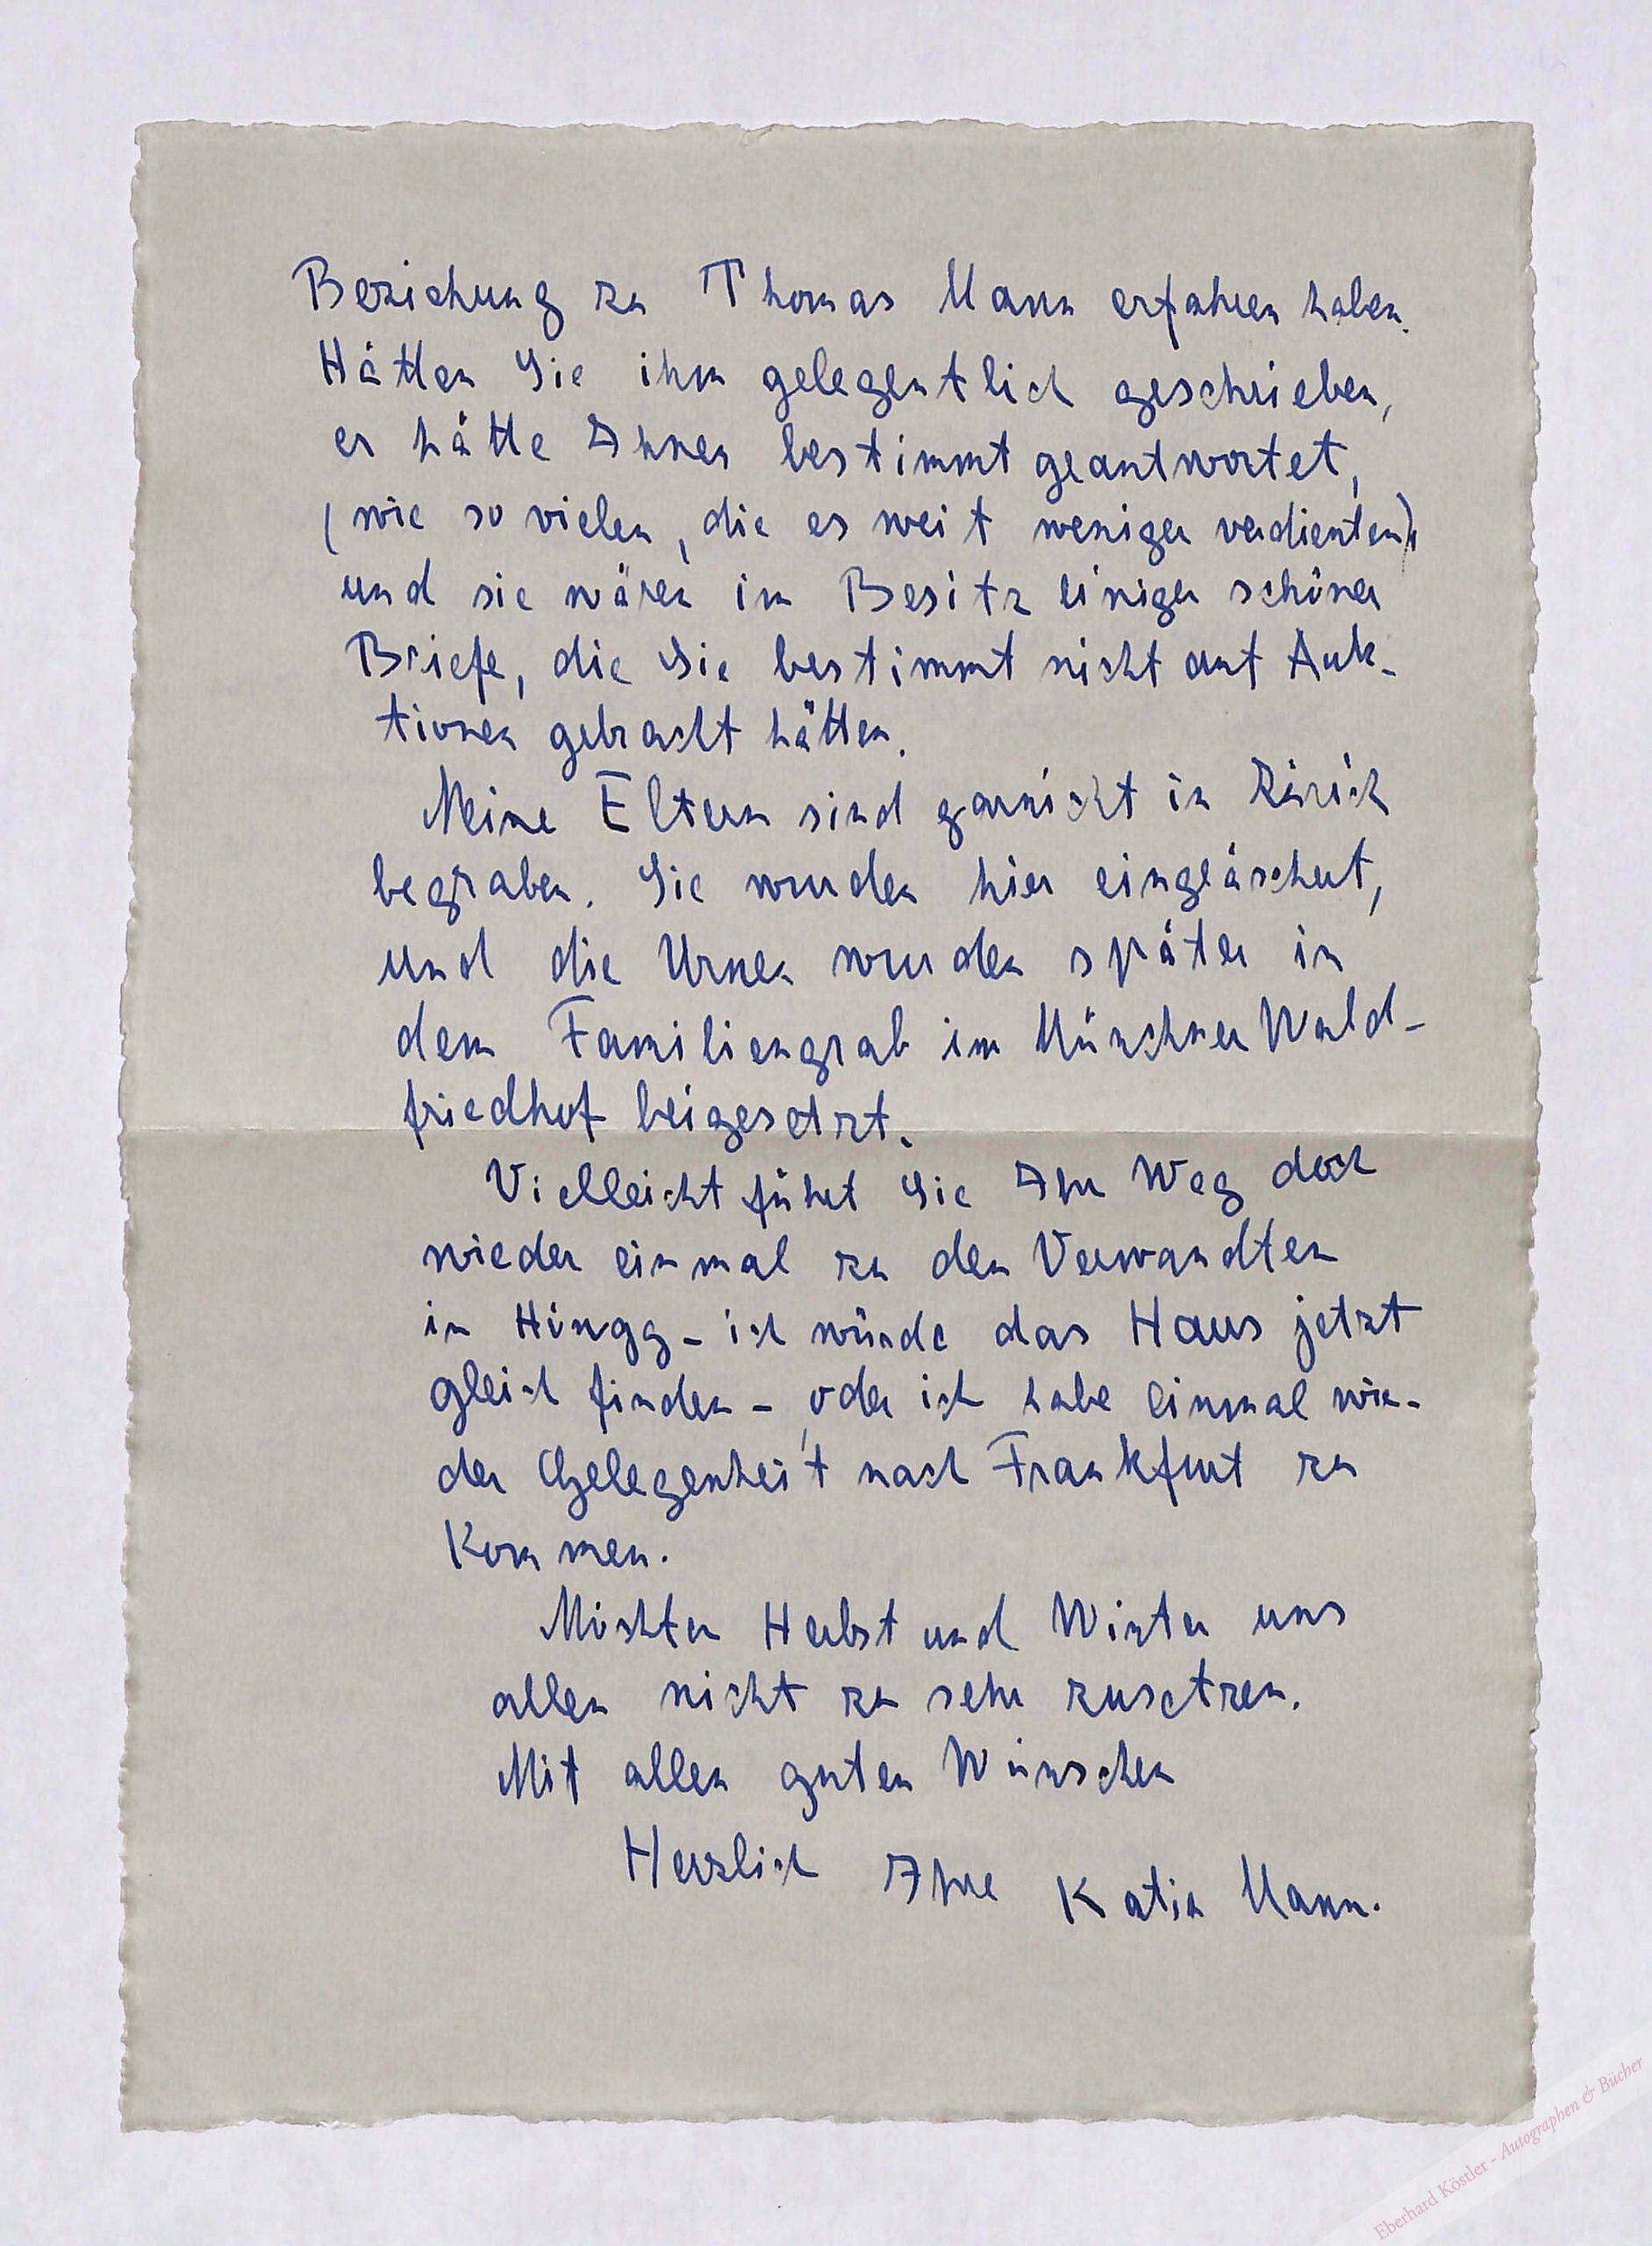 Beziehung zu Thomas Mann erfahren haben.
Hätten Sie ihm gelegentlich geschrieben,
er hätte Ihnen bestimmt geantwortet,
(wie so vielen, die es weit weniger verdienten)
und sie wären im Besitz einiger schöner
Briefe, die Sie bestimmt nicht auf Auk-
tionen gebracht hätten.
Meine Eltern sind garnicht in Zürich
begraben. Sie wurden hier eingeäschert,
und die Urnen wurden später in
dem Familiengrab im Münchner Wald-
friedhof beigesetzt.
Vielleicht führt Sie Ihr Weg doch
wieder einmal zu den Verwandten
in Höngg - ich würde das Haus jetzt
gleich finden - oder ich habe einmal wie-
der Gelegenheit nach Frankfurt zu
Kommen.
Möchten Herbst und Winter uns
allen nicht zu sehr zusetzen.
Mit allen guten Wünschen
Herzlich Ihre Katia Mann.
Eberhard Köstler - Autographen & Bücher